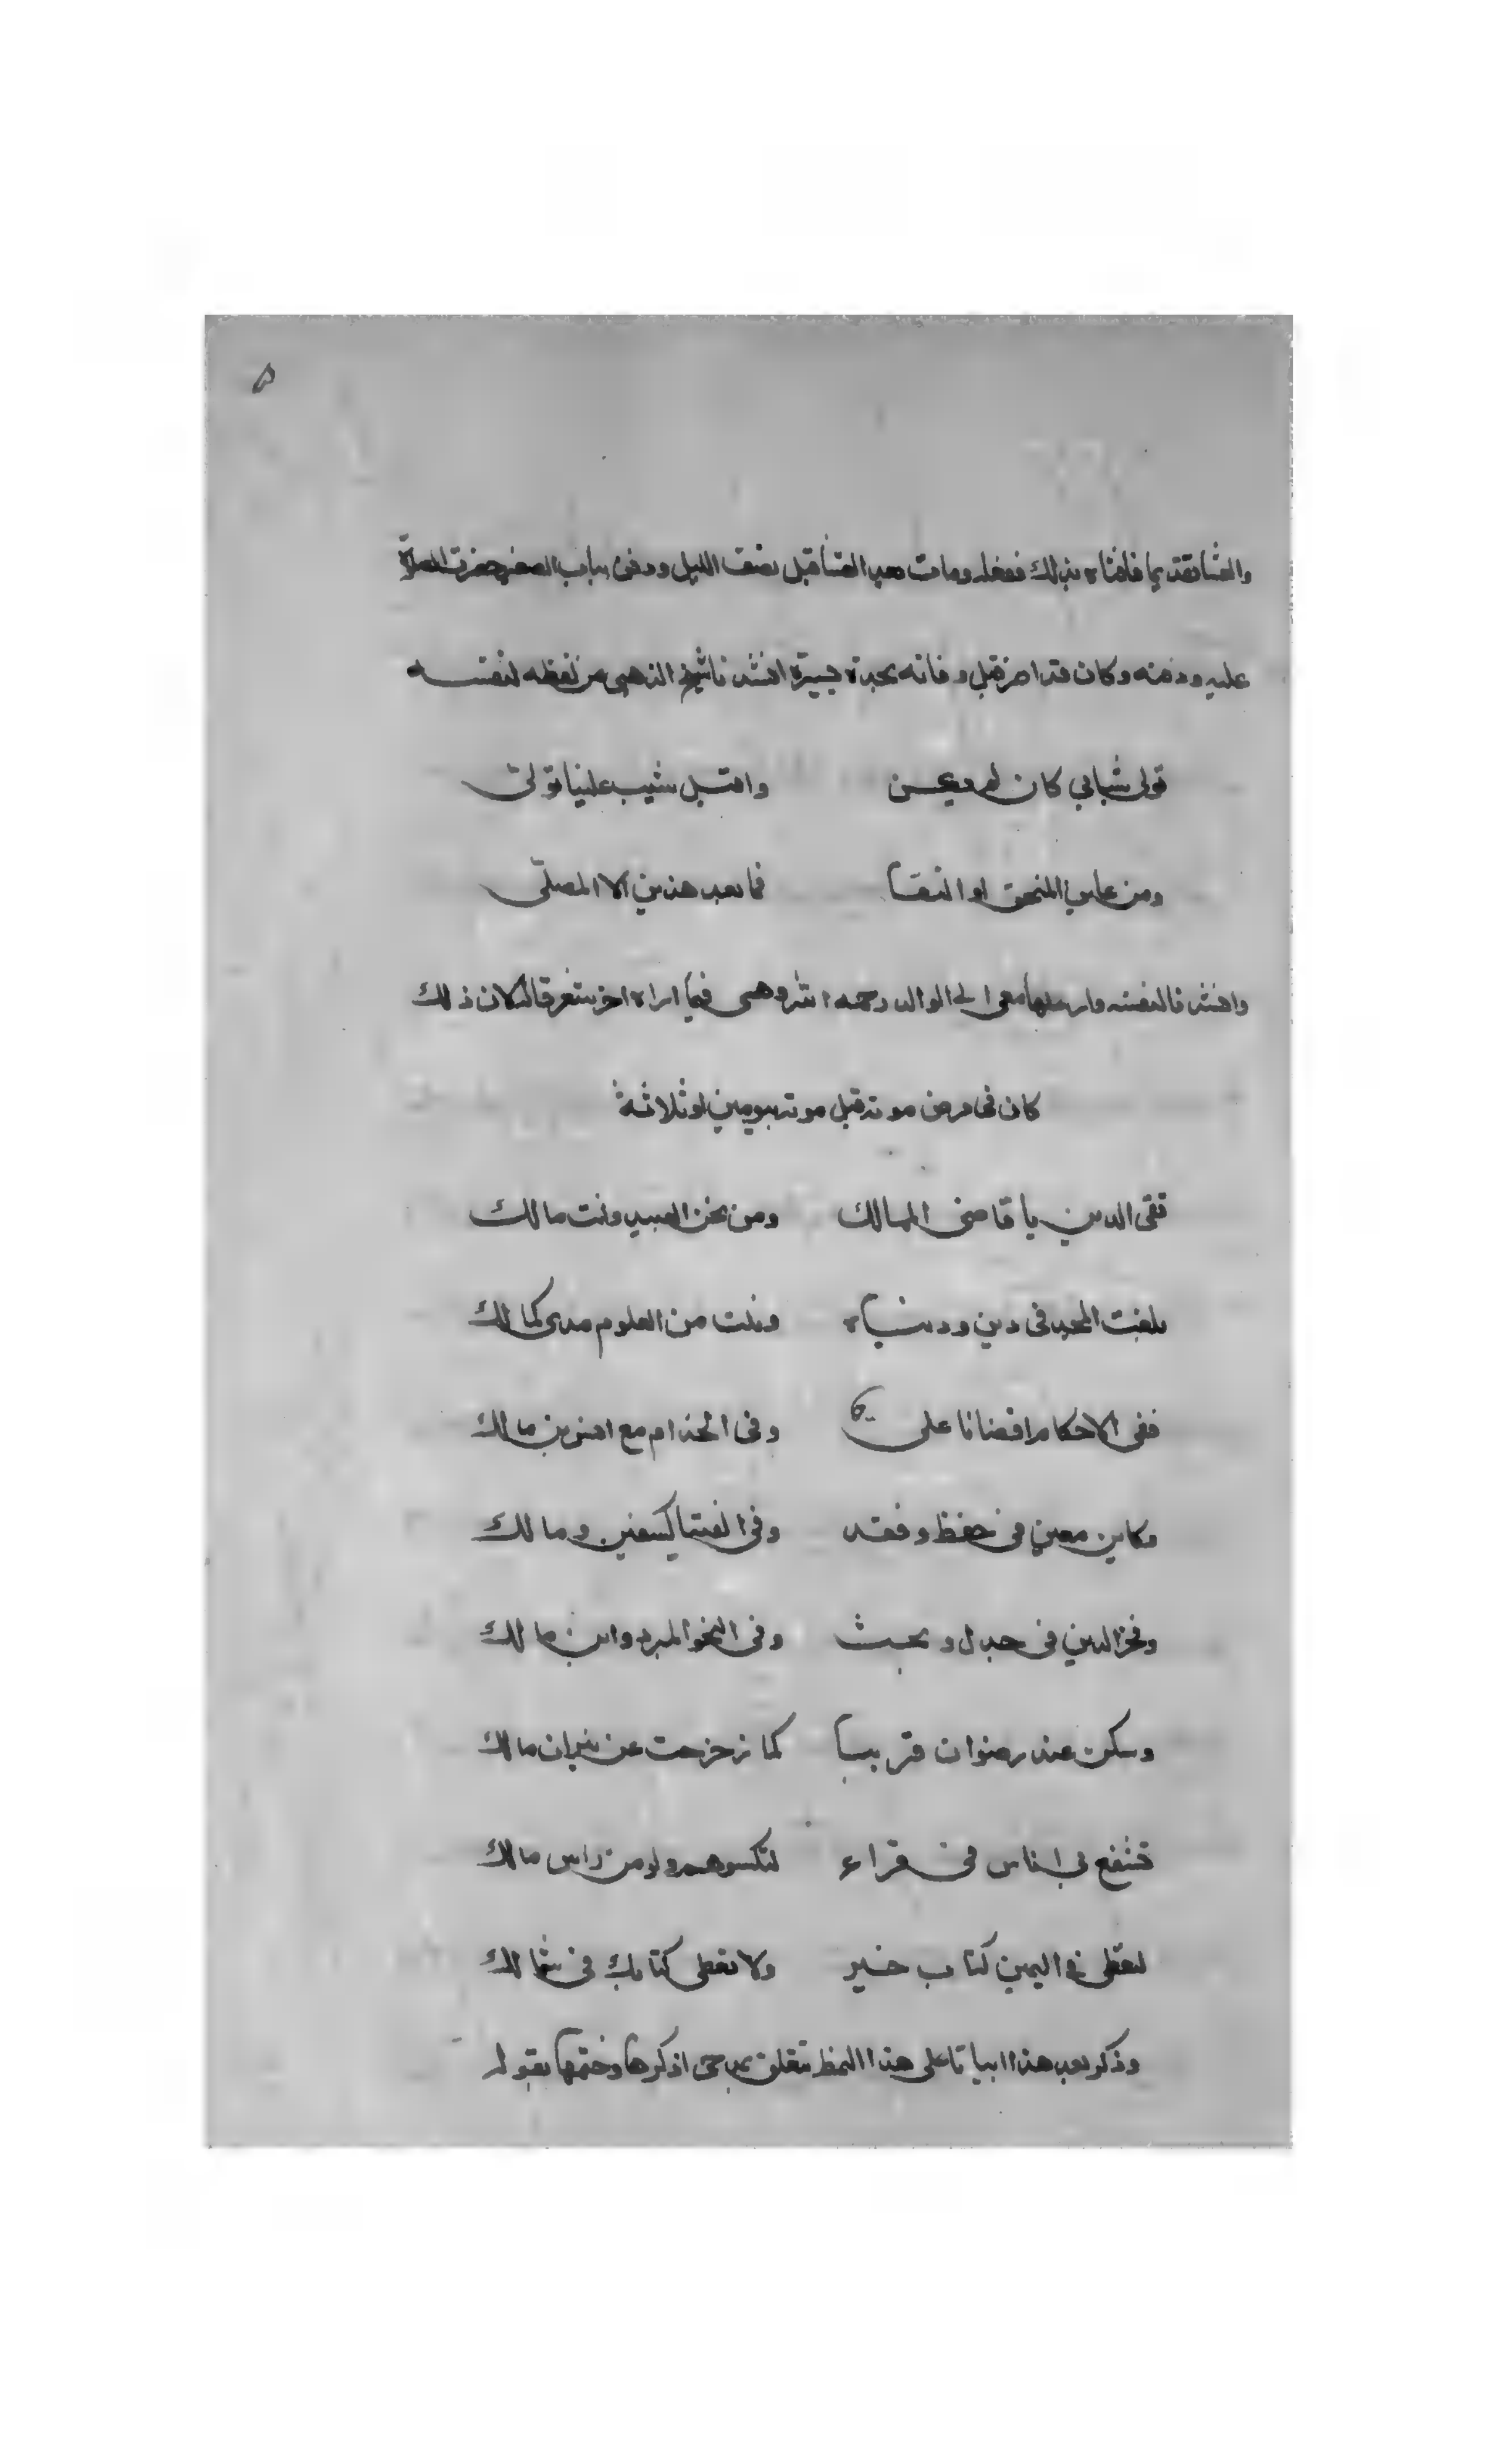 ٥
والعشا تقديما فافتاه بذلك ففعله ومات بعد العشا قبل نصف الليل ودفن بباب الصغير حضرت الصلاة
عليه ودفنه وكان قد اضر قبل وفاته بمدة يسيرة انشدنا شيخ الذهبى من لفظه لنفسه
تولى شبابي كان لم يكن واقبل شيب علينا تولى
ومن عاين المنحنى او النقا فما بعد هذين الا المصلى
وانشدنا لنفسه وارسلها معى الى الوالد رحمه الله وهى فيما اراه اخر شعر قاله لان ذلك
كان فى مرض موته قبل موته بيومين او ثلاثة
تقى الدين يا قاضى الممالك ومن نحن العبيد وانت مالك
بلغت المجد فى دين ودنياه ونلت من العلوم مدى كمالك
ففى الاحكام اقضانا على وفى الخدام مع انس بن مالك
وكابن معين فى حفظ وفقد وفى الفتيا كسفين ومالك
وفخر الدين فى جدل وبحث وفى النحو المبرد وابن مالك
وسكن عند رضوان قريبا كما زحزحت عن نيران مالك
تشفع بى اناس فى فراء لتكسوهم ولو من راس مالك
لتعطى فى اليمين كتاب خير ولا تعطى كتابك فى شمالك
وذكر بعد هذا ابياتا على هذا النمط تتعلق بمدحى اذكرها وختمها بقوله